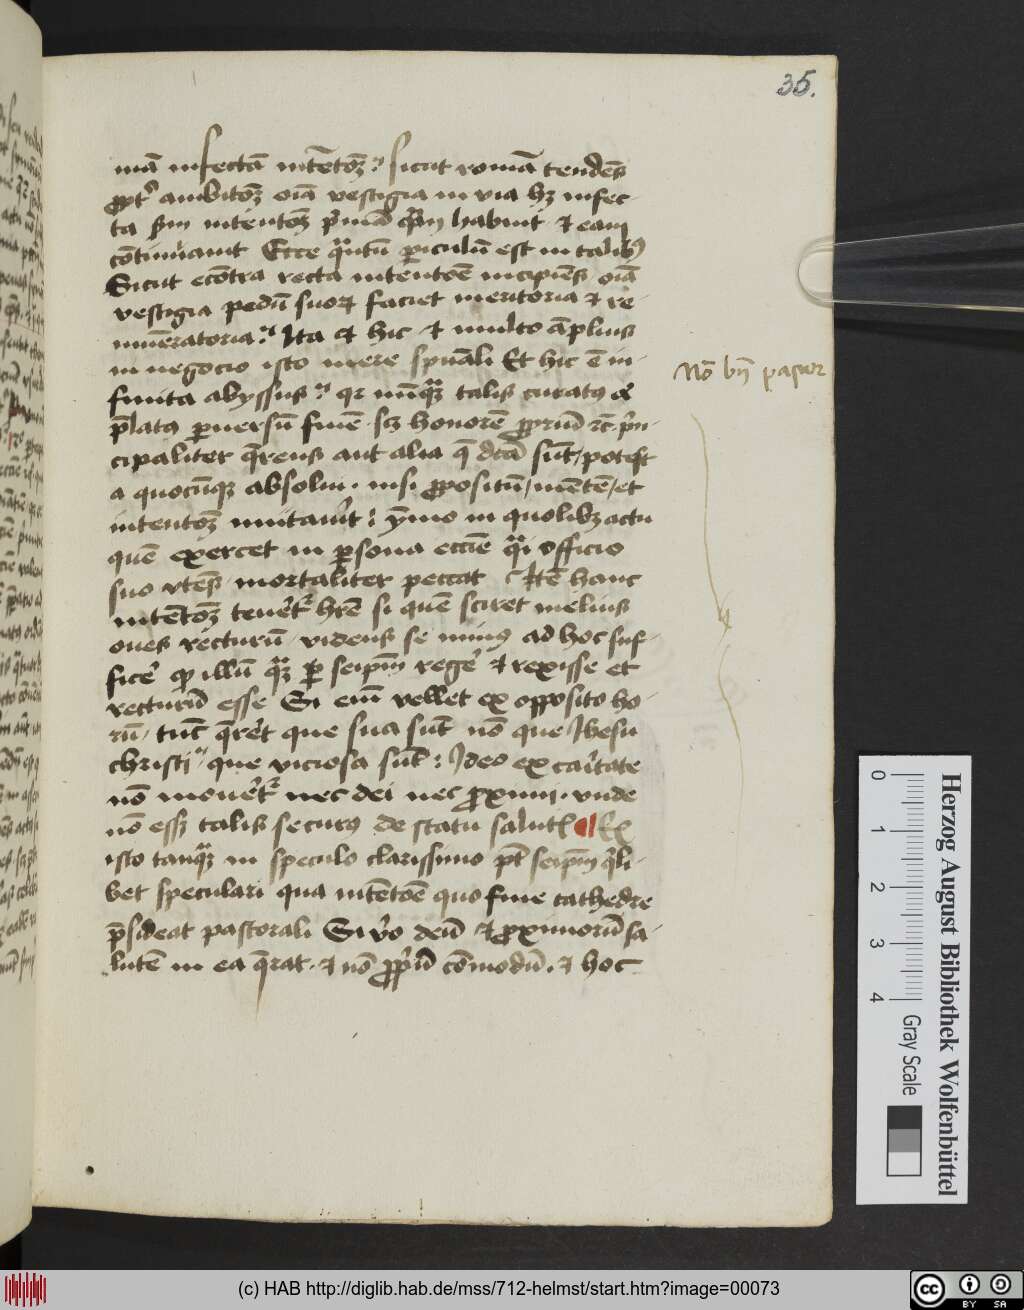 35.
mā infectā intētōꝫ sicut romā tendēs
ꝓpt᷒ ambitōꝫ oīa vestigia in via hꝫ infec-
ta sm intentōꝫ p͛mā habuit ⁊ eam
cōtinuauit Ecce qͣntū ꝑiculū est in talibꝰ
Sicut ecōtra recta intentōe incipiēs oīa
vestigia pedū suoꝝ faciet meritoria ⁊ re-
muneratoria Ita ⁊ hic ⁊ multo āplius
in negocio isto mere spūali Et hic ē in-
finita abyssus qꝛ nūqͣꝫ talis curatꝰ
p̄latꝰ ꝑuersū finē scꝫ honorē ꝓpriū ꝛc̄ p͛n-
cipaliter q̄rens aut alia q̄ dc̄a sūt potest
a quocūqꝫ absolui nisi ꝓpositū mētē et
intentōꝫ mutauīt ȳmo in quolibꝫ actu
quē exercet in ꝑsona eccīe qͣi officio
suo vtēs mortaliter peccat Itē hanc
intētōꝫ tenet᷒ hr̄e si quē sciret melius
oues recturū videns se minꝰ ad hoc suf-
fice᷒ qꝫ illū qͣꝫ ꝑ seipm̄ rege᷒ ⁊ rexisse et
recturū esse Si em̄ vellet ex opposito ho-
rū tūc q̄ret que sua sūt nō que Ihesu
christi que viciosa sūt Ideo ex caritate
nō mouet᷒ nec dei nec ꝓximi vnde
nō essꝫ talis securꝰ de statu salutꝭ Ex
isto tanqͣꝫ in speculo clarissimo pt̄ seipm̄ qͥli-
bet speculari qua intētōe quo fine cathedre
p̄sideat pastorali Si v͛o deū ⁊ ꝓximorū sa-
lutē in ea q̄rat ⁊ nō ꝓpriū cōmodū ⁊ hoc
Nō bn̄
Herzog August Bibliothek Wolfenbüttel
0 1 2 3 4 Gray Scale
(c) HAB http://diglib.hab.de/mss/712-helmst/start.htm?image=00073
cc BY SA